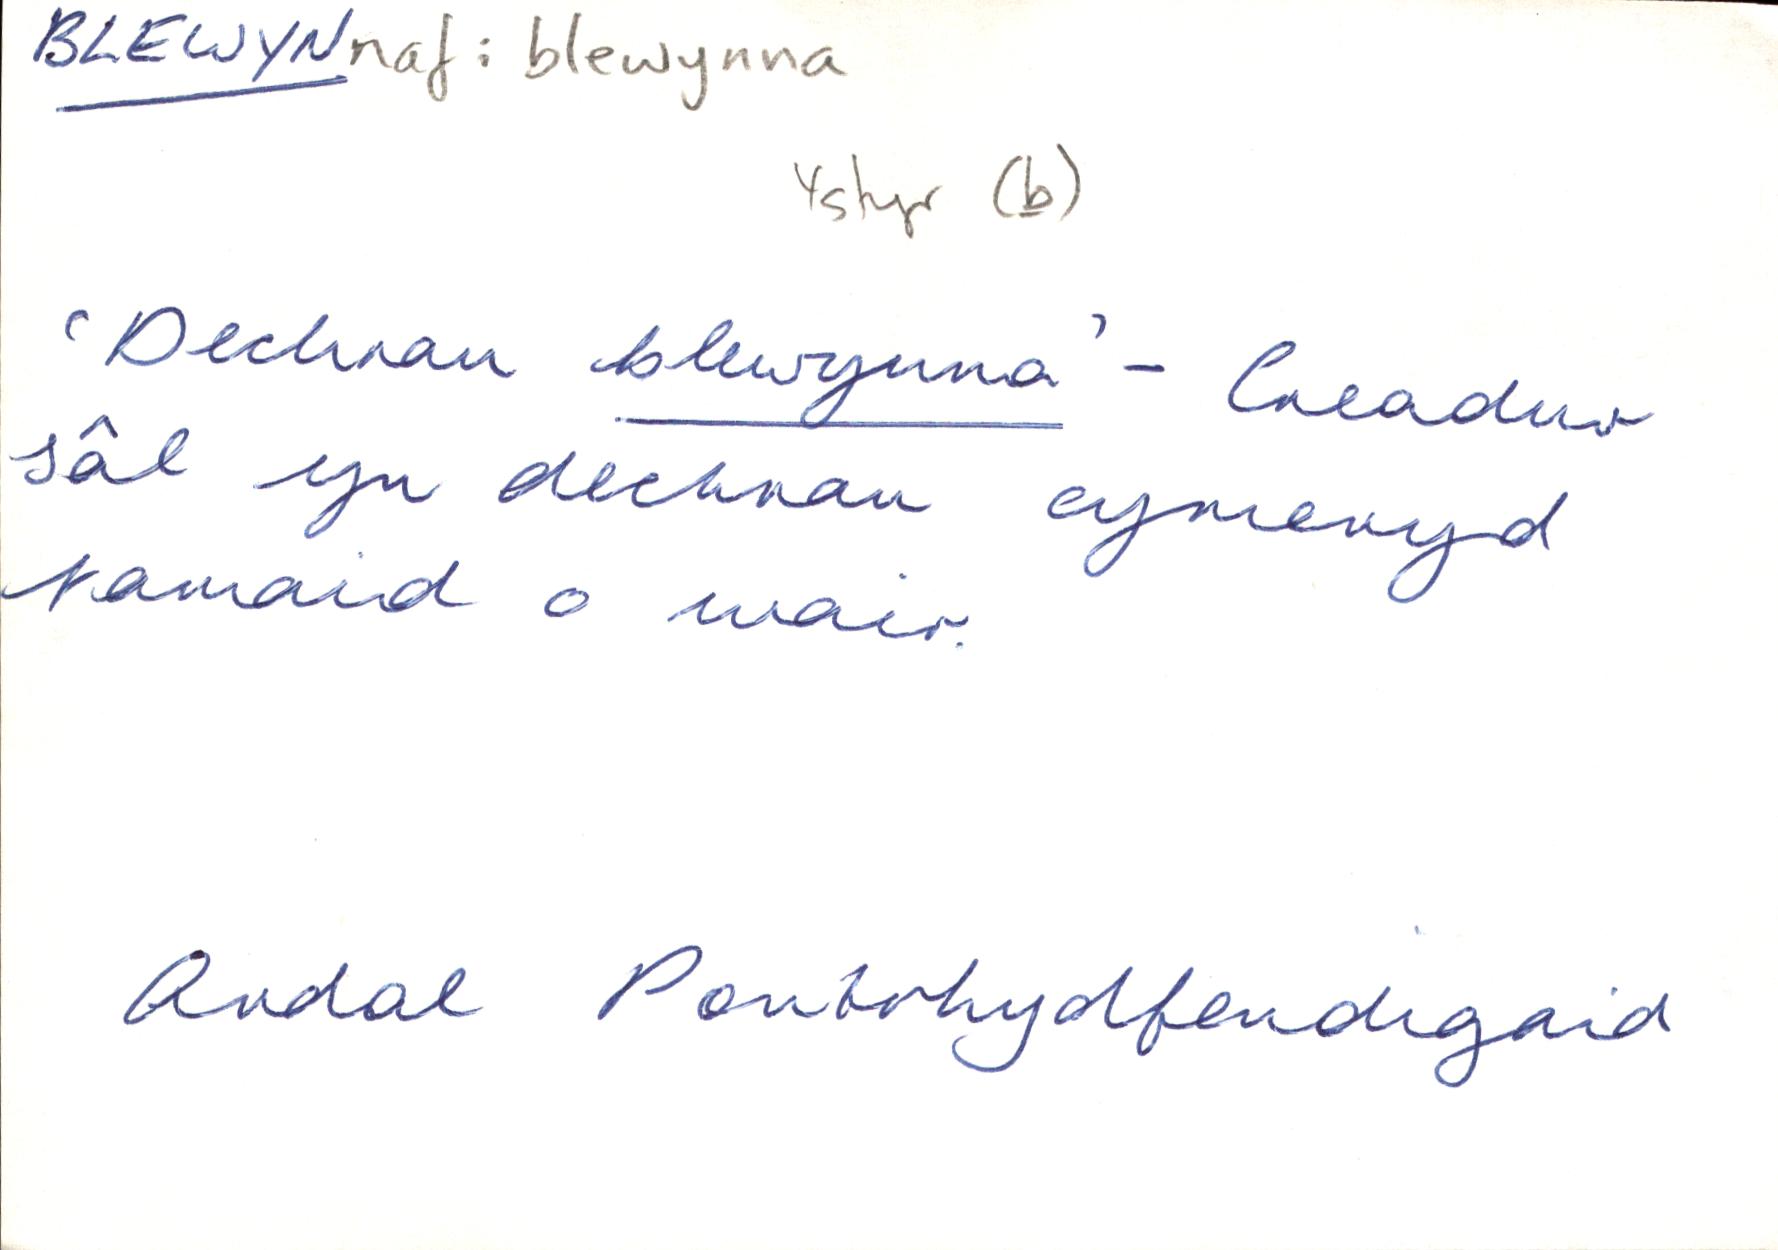 BLEWYNnaf: blewynna
Ystyr (b)
'Dechrau blewynna' - Creadur
sâl yn dechrau cymeryd
tamaid o wair.
Ardal Pontrhydfendigaid